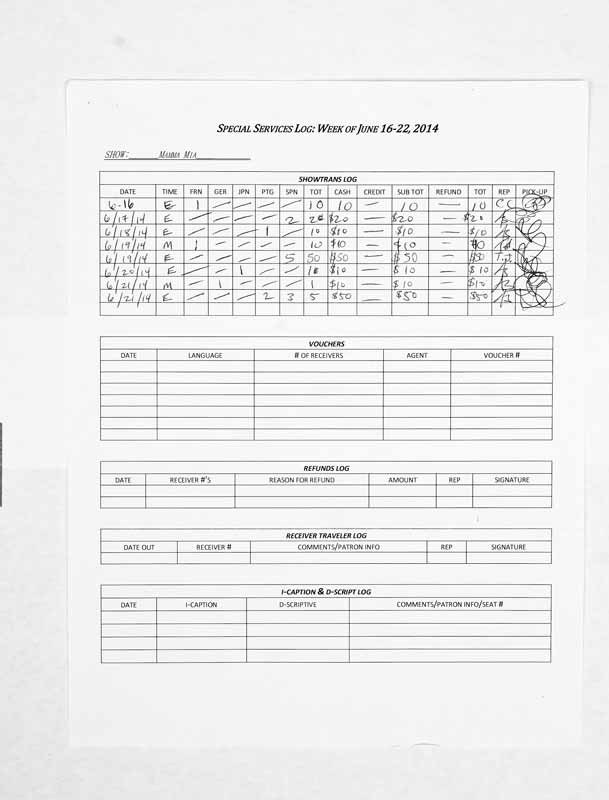 SPECIAL SERVICES LOG: WEEK OF JUNE 16-22, 2014
SHOW: MAMMA MIA
SHOWTRANS LOG
DATE TIME FRN GER JPN PTG SPN TOT CASH CREDIT SUB TOT REFUND TOT REP PICK-UP
6-16 E 1 — — — — 10 10 — 10 — 10 CC
6/17/14 E — — — — 2 $20 — $20 — $20
6/18/14 E — — — 1 — 10 $10 — $10 — $10
6/19/14 M 1 — — — — 10 $10 — $10 —
6/19/14 E — — — — 5 50 $50 — $50 — $50
6/20/14 E — — 1 — — $10 — $10 — $10
6/21/14 M — 1 — — — 1 $10 — $10 — $10
6/21/14 E — — — 2 3 5 $50 — $50 — $50
VOUCHERS
DATE LANGUAGE # OF RECEIVERS AGENT VOUCHER #
REFUNDS LOG
DATE RECEIVER #'S REASON FOR REFUND AMOUNT REP SIGNATURE
RECEIVER TRAVELER LOG
DATE OUT RECEIVER # COMMENTS/PATRON INFO REP SIGNATURE
I-CAPTION & D-SCRIPT LOG
DATE I-CAPTION D-SCRIPTIVE COMMENTS/PATRON INFO/SEAT #